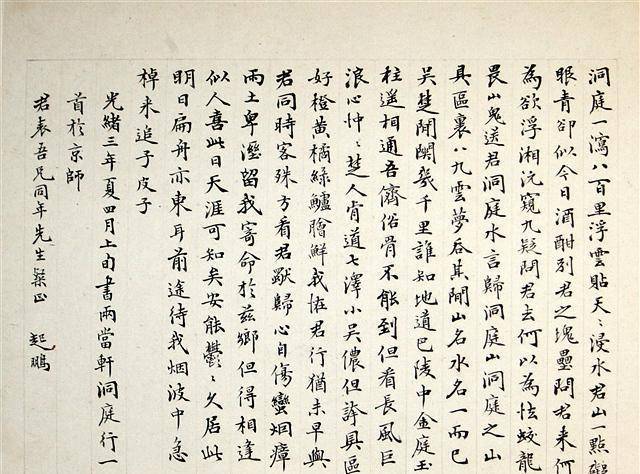 洞庭一瀉八百里浮雲貼天〻浸水君山一點礙
眼青卻似今日酒酣別君之塊壘問君来何
為欲浮湘沅窺九疑問君去何以為怯蛟龍
畏山鬼送君洞庭水言歸洞庭山洞庭之山
具區裏八九雲夢吞其間山名水名一而已
吳楚間關幾千里誰知地道巴陵中金庭玉
柱遥相通吾儕俗骨不能到但看長風巨
浪心忡〻楚人肯道七澤小吳儂但誇具區
好橙黃橘綠鱸膾鮮我恠君行猶未早與
君同時客殊方看君歸心自傷蠻烟瘴
雨土卑溼留我寄命於兹鄉但得相逢
似人喜此日天涯可知矣安能鬱〻久居此
明日扁舟亦東耳前途待我烟波中急
棹来追子皮子
光緒三年夏四月上旬書兩當軒洞庭行一
首於京師
君表吾兄同年先生粲正 起鵬